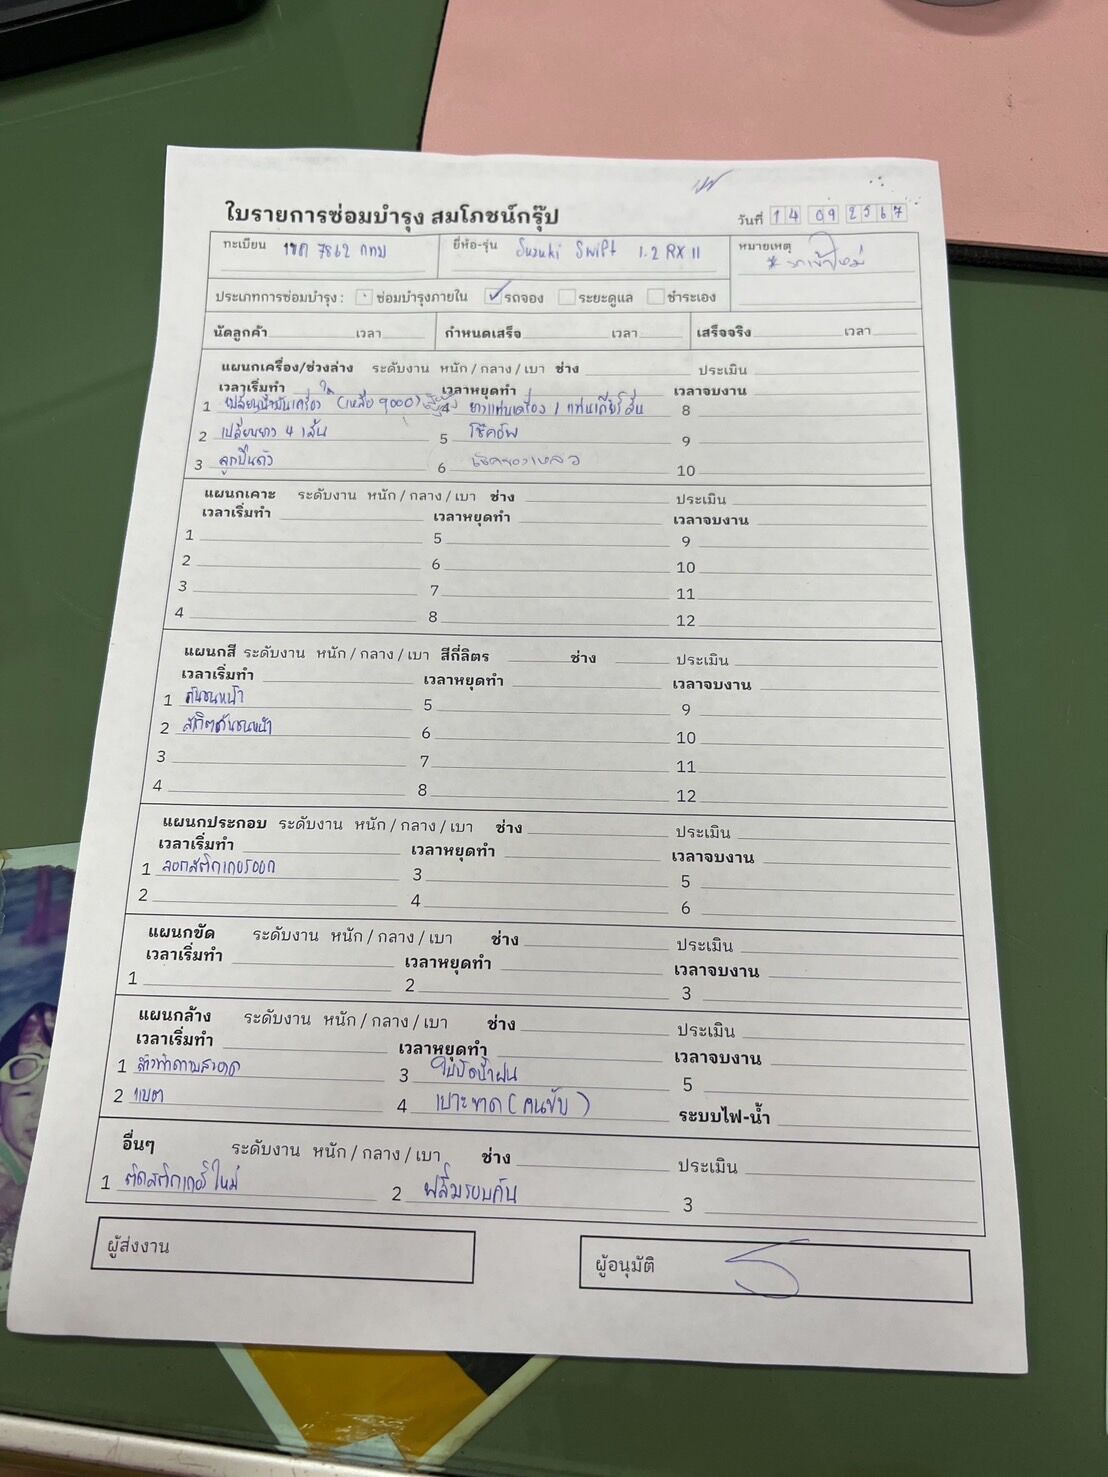 ใบรายการซ่อมบำรุง สมโภชน์กรุ๊ป
วันที่ 14 09 2567
ทะเบียน 7862 กทม ยี่ห้อ-รุ่น Suzuki Swift 1.2 RX II หมายเหตุ
* รถเข้าใหม่
ประเภทการซ่อมบำรุง : ซ่อมบำรุงภายใน รถจอง ระยะดูแล ชำระเอง
นัดลูกค้า เวลา กำหนดเสร็จ เวลา เสร็จจริง เวลา
แผนกเครื่อง/ช่วงล่าง ระดับงาน หนัก / กลาง / เบา ช่าง ประเมิน
เวลาเริ่มทำ เวลาหยุดทำ เวลาจบงาน
1 เปลี่ยนน้ำมันเครื่อง (เหลือ 9000) 4 ยางแท่นเครื่อง / แท่นเกียร์สั่น 8
2 เปลี่ยนยาง 4 เส้น 5 โช๊คอัพ 9
3 ลูกปืนดัง 6 เช็คของเหลว 10
แผนกเคาะ ระดับงาน หนัก / กลาง / เบา ช่าง ประเมิน
เวลาเริ่มทำ เวลาหยุดทำ เวลาจบงาน
1 5 9
2 6 10
3 7 11
4 8 12
แผนกสี ระดับงาน หนัก / กลาง / เบา สีกี่ลิตร ช่าง ประเมิน
เวลาเริ่มทำ เวลาหยุดทำ เวลาจบงาน
1 กันชนหน้า 5 9
2 สเกิตกันชนหน้า 6 10
3 7 11
4 8 12
แผนกประกอบ ระดับงาน หนัก / กลาง / เบา ช่าง ประเมิน
เวลาเริ่มทำ เวลาหยุดทำ เวลาจบงาน
1 ลอกสติกเกอร์ออก 3 5
2 4 6
แผนกขัด ระดับงาน หนัก / กลาง / เบา ช่าง ประเมิน
เวลาเริ่มทำ เวลาหยุดทำ เวลาจบงาน
1 2 3
แผนกล้าง ระดับงาน หนัก / กลาง / เบา ช่าง ประเมิน
เวลาเริ่มทำ เวลาหยุดทำ เวลาจบงาน
1 ล้างทำความสะอาด 3 ใบปัดน้ำฝน 5
2 แบต 4 เบาะขาด (คนขับ) ระบบไฟ-น้ำ
อื่นๆ ระดับงาน หนัก / กลาง / เบา ช่าง ประเมิน
1 ติดสติกเกอร์ใหม่ 2 ฟิล์มรอบคัน 3
ผู้ส่งงาน ผู้อนุมัติ